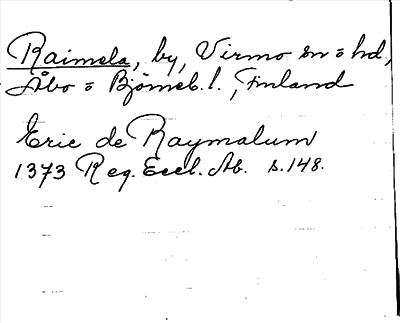 Raimela, by, Virmo sn o hd,
Åbo o Björneb. l., Finland
Eric de Raymalum
1373 Reg. Eccl. Ab. s. 148.